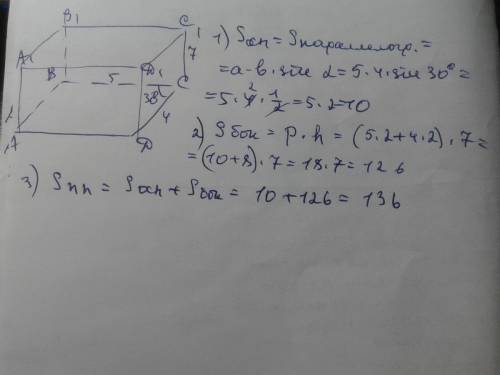 B₁ C₁
A₁ D₁ 7
B 5 C
30° 4
A D
1) Sосн = Sпараллелогр. =
= a·b·sin α = 5·4·sin 30° =
= 5·4·1/2 = 5·2=10
2) Sбок = p·h = (5·2+4·2)·7 =
= (10+8)·7 = 18·7 = 126
3) Sпп = Sосн + Sбок = 10+126 = 136